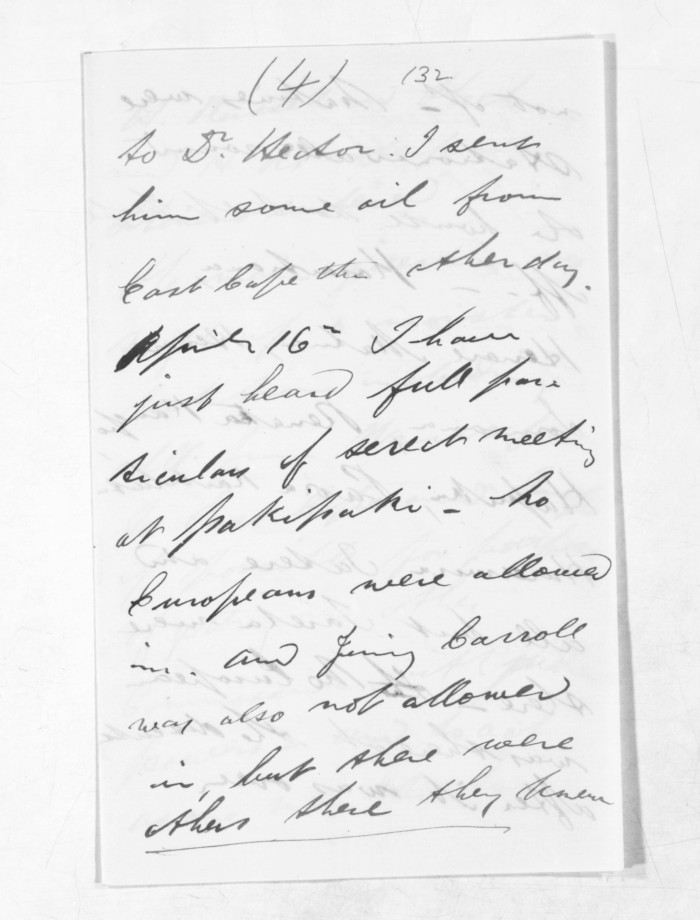 (4) 132
to Dr. Hector. I sent
him some oil from
East Cape the other day.
April 16th I have
just heard full par-
ticulars of secret meeting
at Pakipaki - No
Europeans were allowed
in. and Jimmy Carroll
was also not allowed
in, but there were
others there they knew